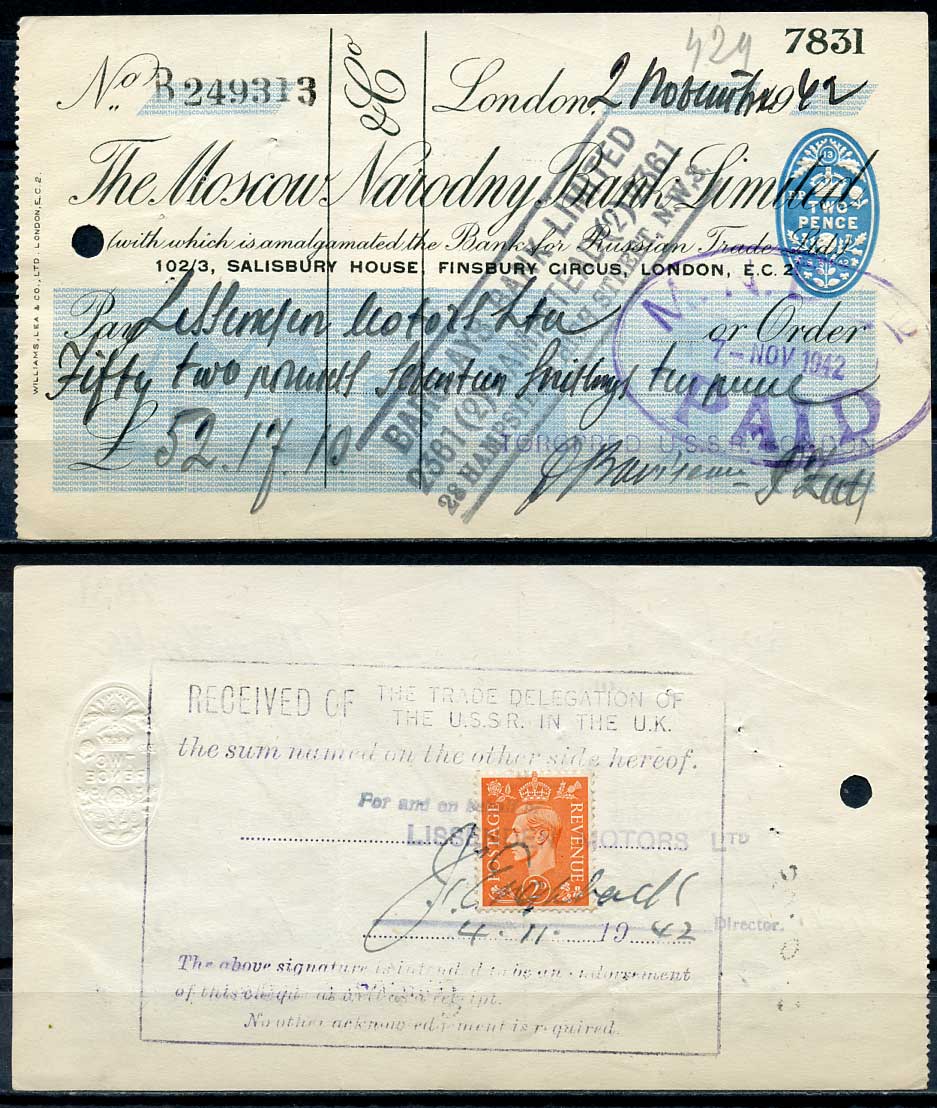 429
7831
No. B 249313
& Co
London, 2 November 1942
The Moscow Narodny Bank Limited
(with which is amalgamated the Bank for Russian Trade Ltd.)
102/3, SALISBURY HOUSE, FINSBURY CIRCUS, LONDON, E.C. 2.
TWO
PENCE
WILLIAMS, LEA & CO., LTD. LONDON, E.C. 2.
Pay Lissenden Motors Ltd or Order
Fifty two pounds seventeen shillings ten pence
£ 52.17.10
BARCLAYS BANK LIMITED
2361 (2) HAMPSTEAD (2) 2361
28 HAMPSTEAD HIGH STREET, N.W.3
7 - NOV 1942
PAID
TORGPRED U.S.S.R. LONDON
RECEIVED OF THE TRADE DELEGATION OF
THE U.S.S.R. IN THE U.K.
the sum named on the other side hereof.
For and on behalf of
LISSENDEN MOTORS LTD
POSTAGE REVENUE
2D
Director.
4. 11. 1942
The above signature is intended to be an endorsement
of this cheque as well as a receipt.
No other acknowledgement is required.